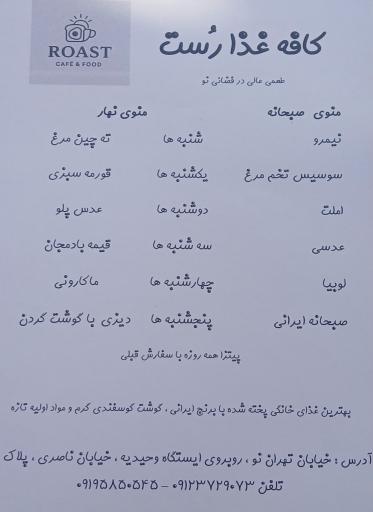 ROAST
CAFÉ & FOOD
کافه غذا رُست
طعمی عالی در فضائی نو
منوی صبحانه
منوی نهار
نیمرو شنبه ها ته چین مرغ
سوسیس تخم مرغ یکشنبه ها قورمه سبزی
املت دوشنبه ها عدس پلو
عدسی سه شنبه ها قیمه بادمجان
لوبیا چهارشنبه ها ماکارونی
صبحانه ایرانی پنجشنبه ها دیزی با گوشت گردن
پیتزا همه روزه با سفارش قبلی
بهترین غذای خانگی پخته شده با برنج ایرانی ، گوشت گوسفندی گرم و مواد اولیه تازه
آدرس : خیابان تهران نو ، روبروی ایستگاه وحیدیه ، خیابان ناصری ، پلاک
تلفن ۰۹۱۲۳۷۲۹۰۷۳ – ۰۹۱۹۵۸۵۰۵۴۵